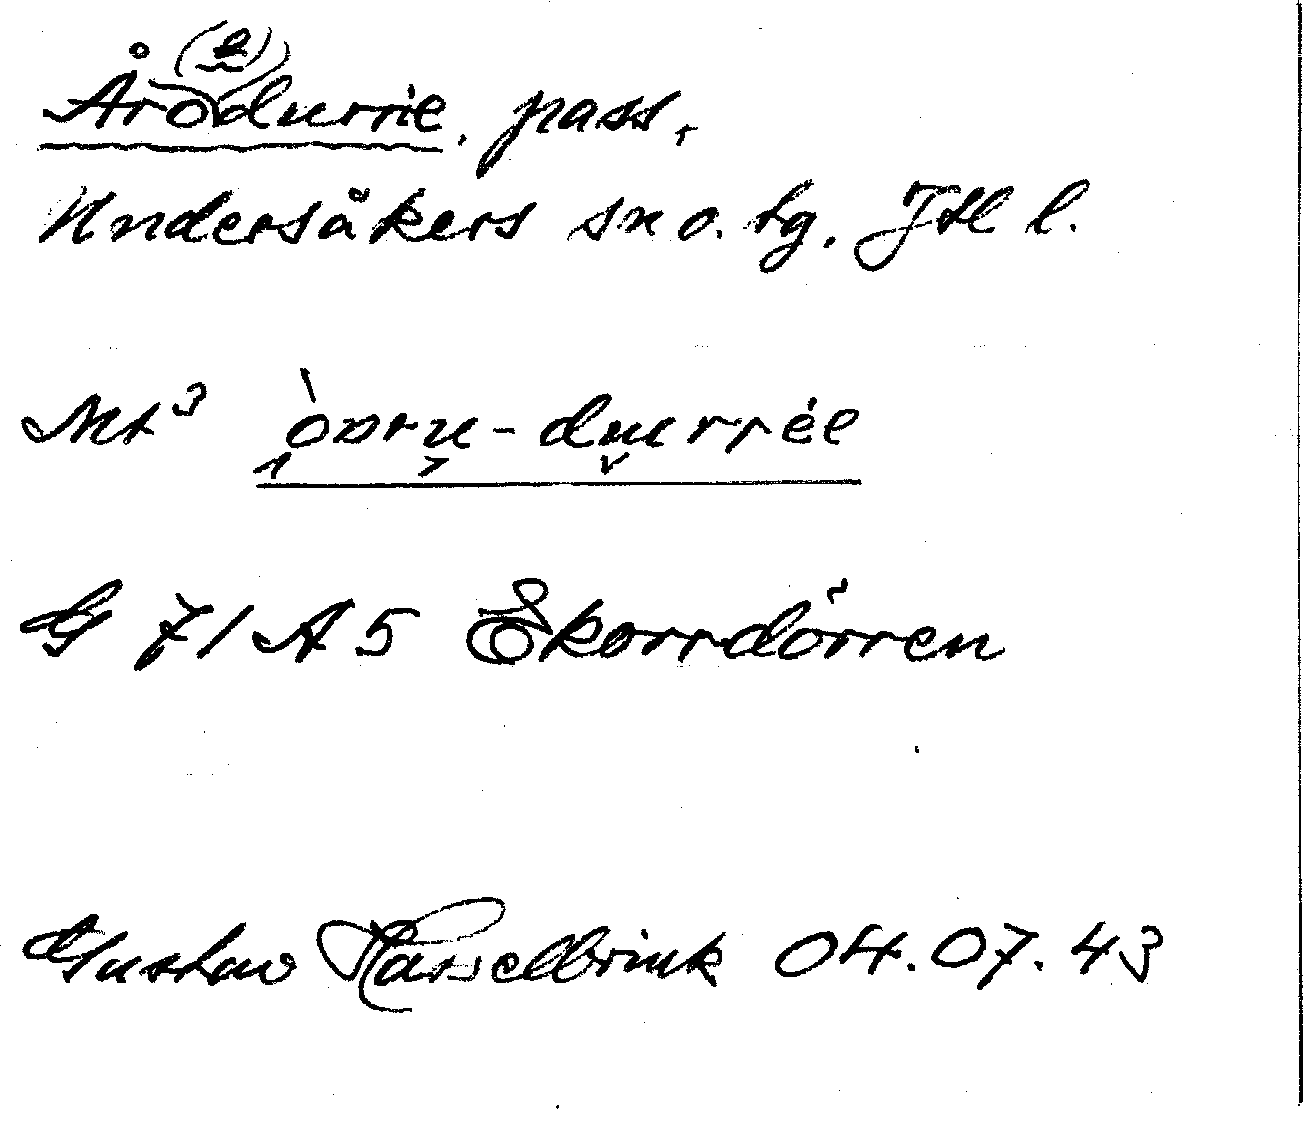 (e)
Årodurrie, pass,
Undersåkers sn o. tg. Jtl l.
Mt³ òvru-durrėe
G 71 A 5 Skorrdörren
Gustav Hasselbrink 04.07.43